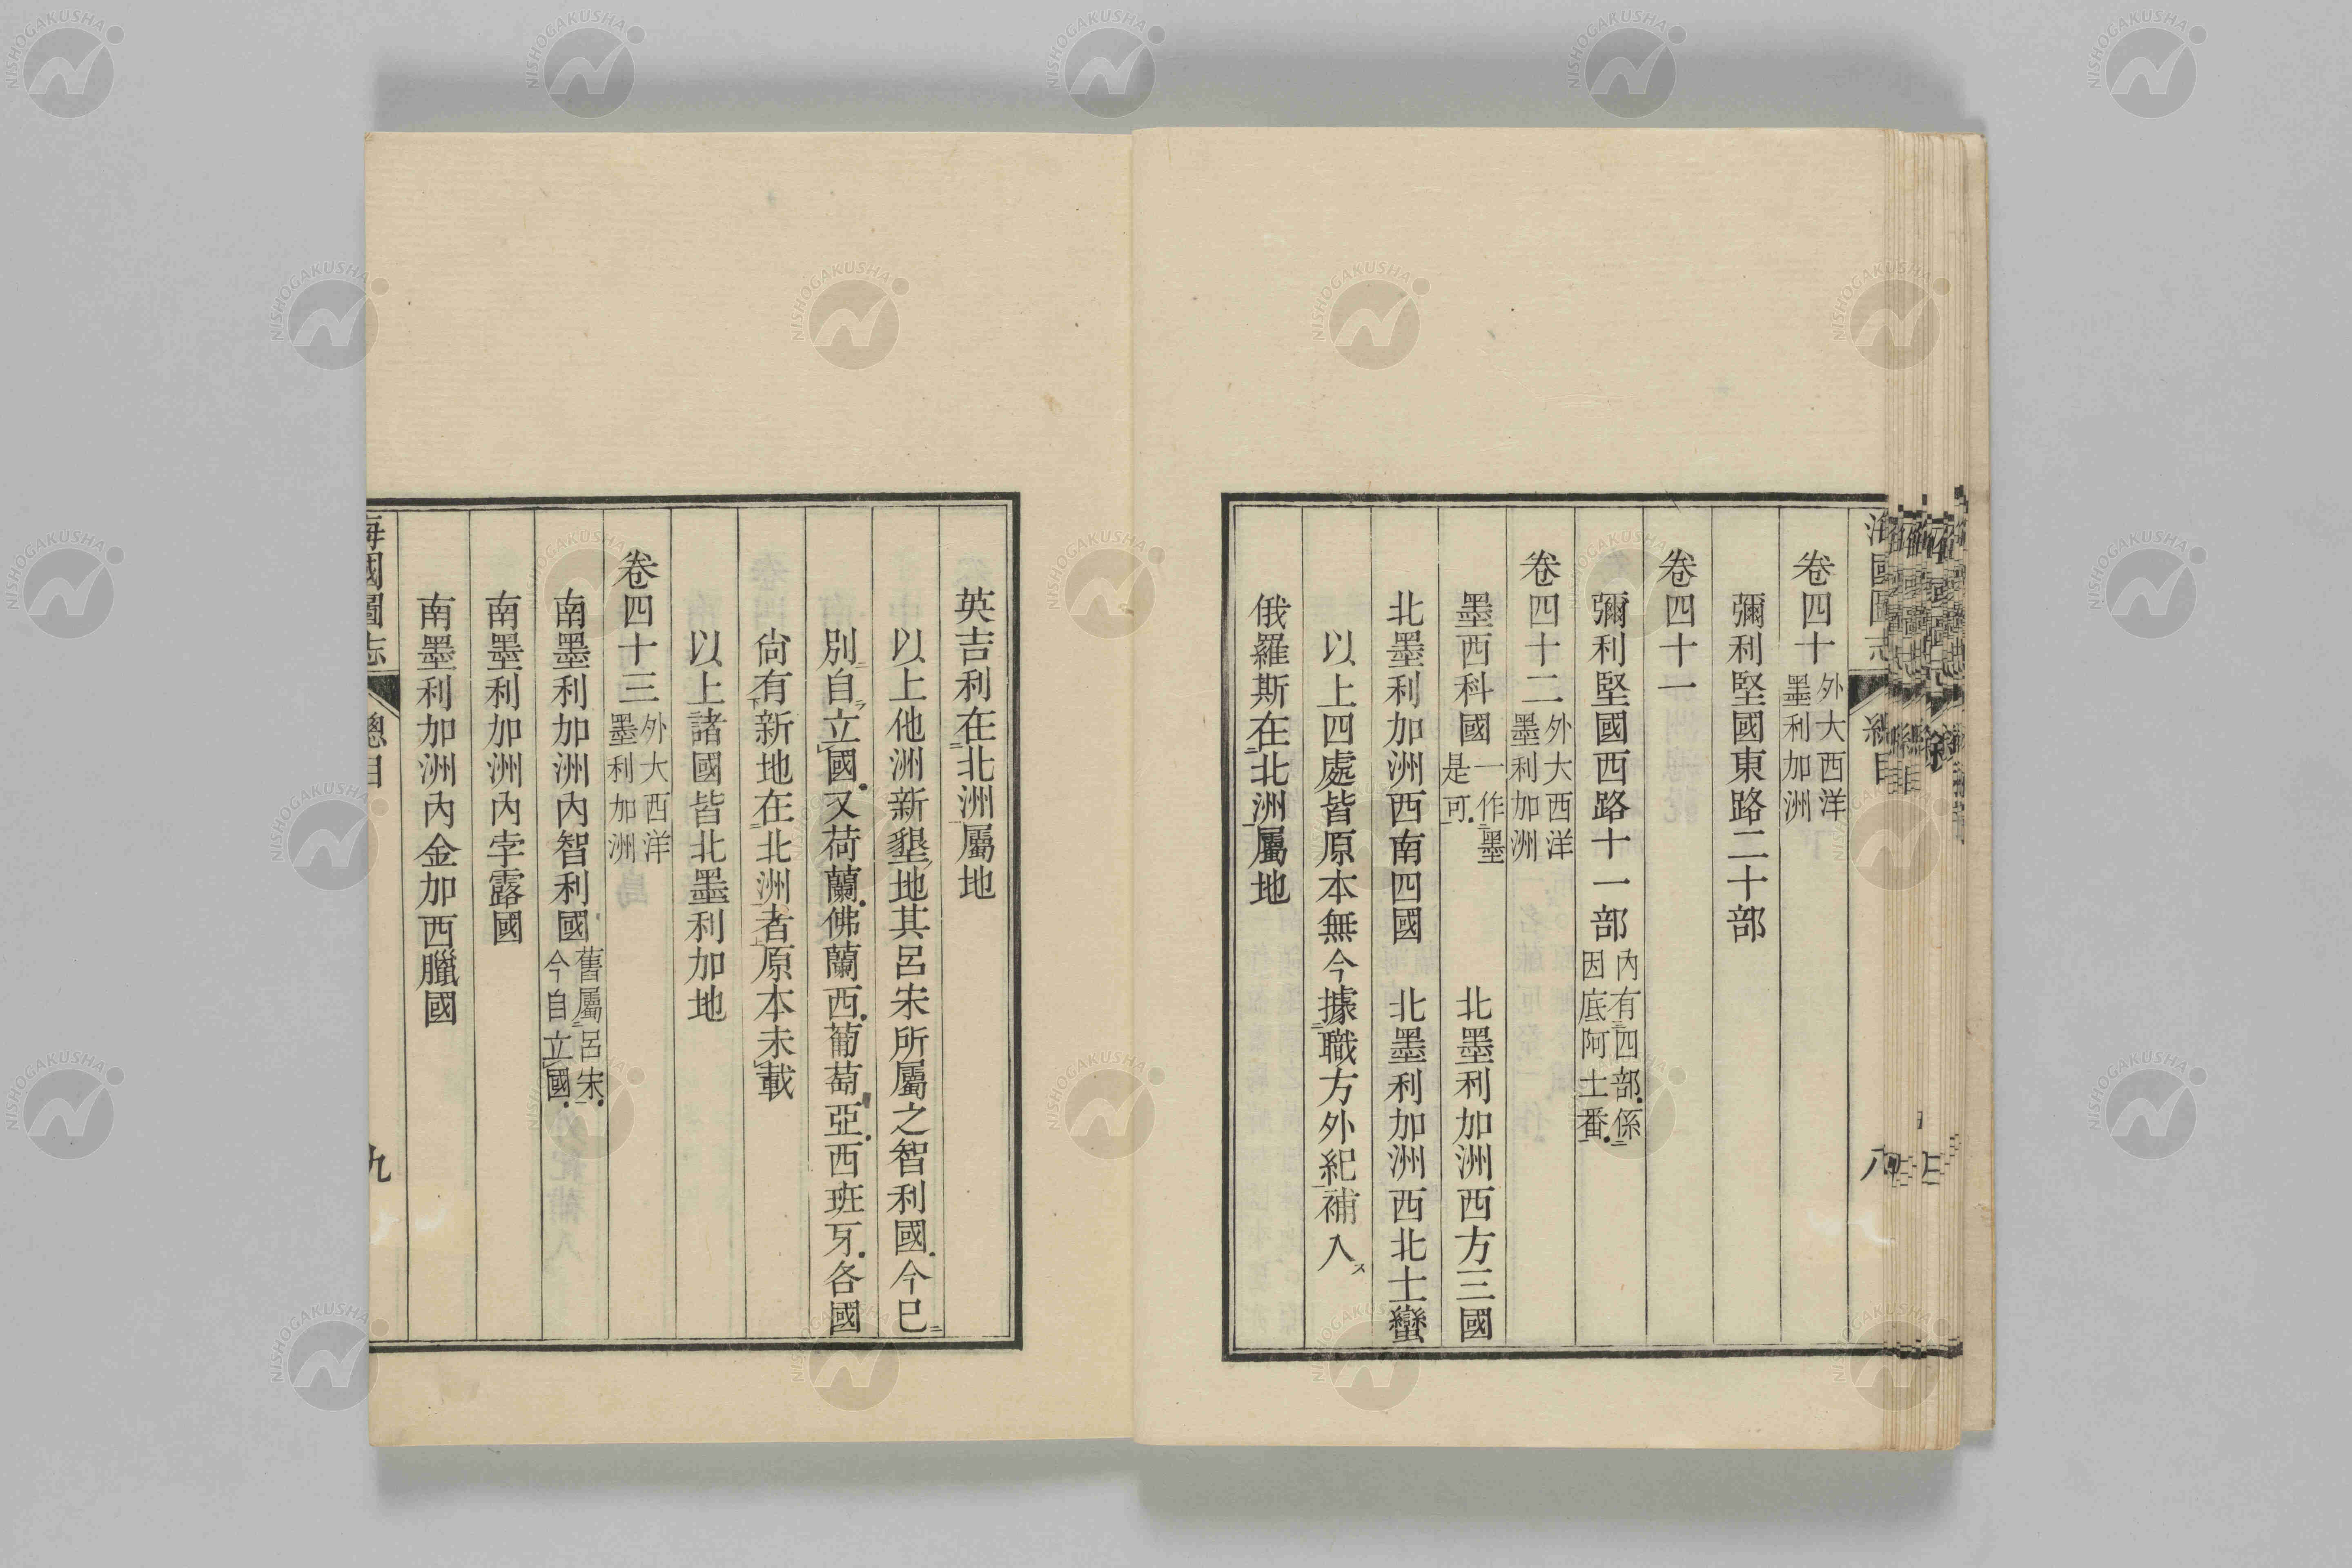 海國圖志 總目 八
卷四十 外大西洋墨利加洲
彌利堅國東路二十部
卷四十一
彌利堅國西路十一部 內有四部係因底阿土番
卷四十二 外大西洋墨利加洲
墨西科國 一作墨是可 北墨利加洲西方三國
北墨利加洲西南四國 北墨利加洲西北土蠻
以上四處皆原本無今據職方外紀補入ス
俄羅斯在北洲屬地
英吉利在北洲屬地
以上他洲新墾地其呂宋所屬之智利國今已
別自立國又荷蘭佛蘭西葡萄亞西班牙各國
尙有新地在北洲者原本未載
以上諸國皆北墨利加地
卷四十三 外大西洋墨利加洲
南墨利加洲內智利國 舊屬呂宋今自立國
南墨利加洲內孛露國
南墨利加洲內金加西臘國
海國圖志 總目 九
NISHOGAKUSHA